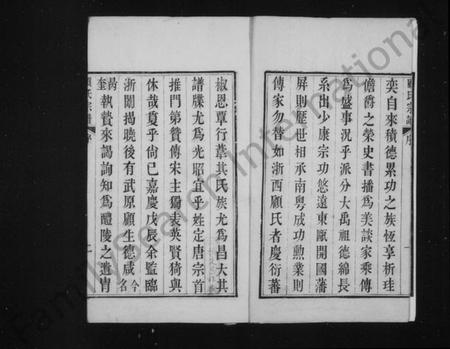 顧氏宗譜 序 一
奕自來積德累功之族恆享析珪
儋爵之榮史書播為美談家乘傳
為盛事況乎派分大禹祖德綿長
系出少康宗功悠遠東甌開國藩
屏則歷世相承南粵成功勲業則
傳家勿替如浙西顧氏者慶衍蕃
椒恩覃行葦其氏族尤為昌大其
譜牒尤為光昭宜乎姓定唐宗首
推門第贊傳宋主獨表英賢猗與
休哉夐乎尚已嘉慶戊辰余監臨
浙闈揭曉後有武原顧生德咸今名
芮奎執贄來謁詢知為醴陵之遺胄
顧氏宗譜 序
FamilySearch International